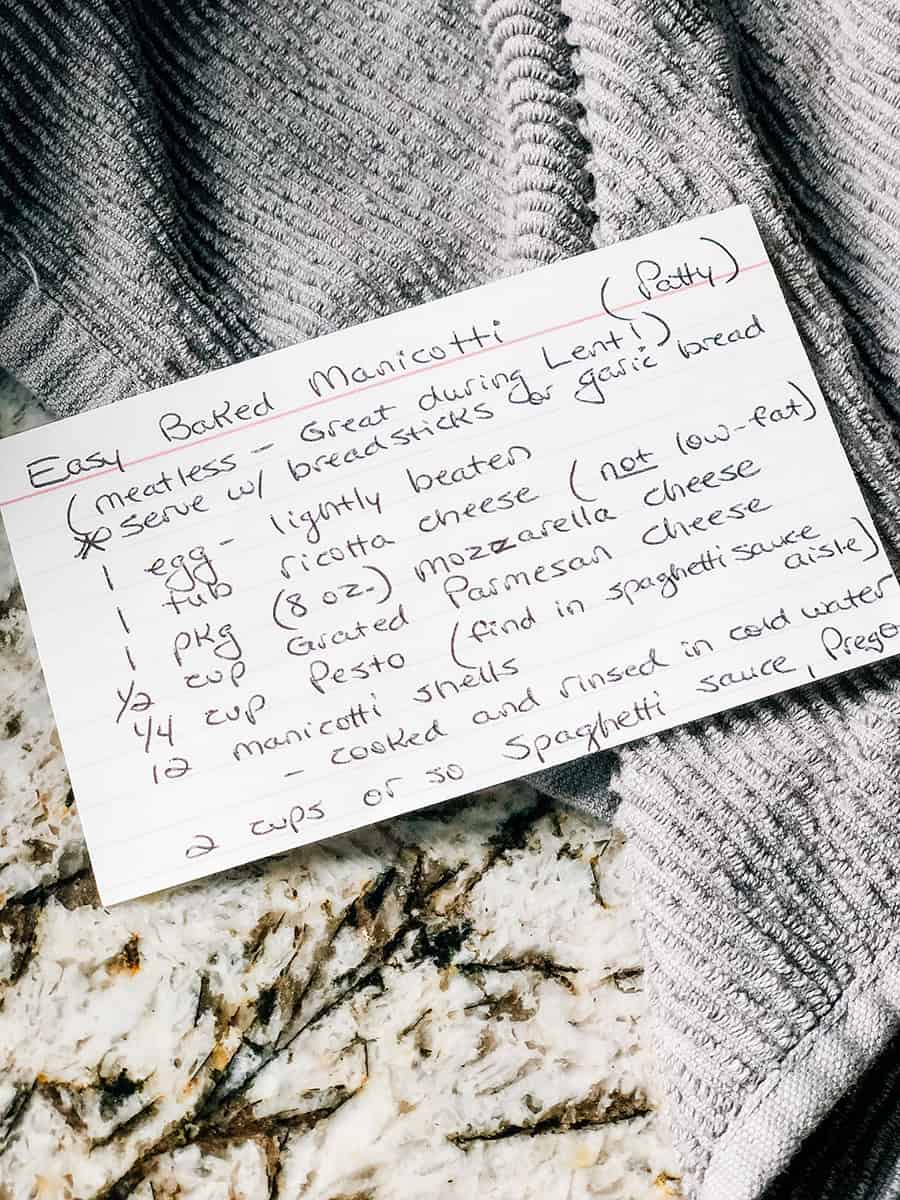 Easy Baked Manicotti (Patty)
(meatless - Great during Lent!)
* serve w/ breadsticks or garlic bread
1 egg - lightly beaten
1 tub ricotta cheese (not low-fat)
1 pkg (8 oz.) mozzarella cheese
1/2 cup Grated Parmesan cheese
1/4 cup Pesto (find in spaghetti sauce aisle)
12 manicotti shells
- cooked and rinsed in cold water
2 cups or so Spaghetti sauce, Prego